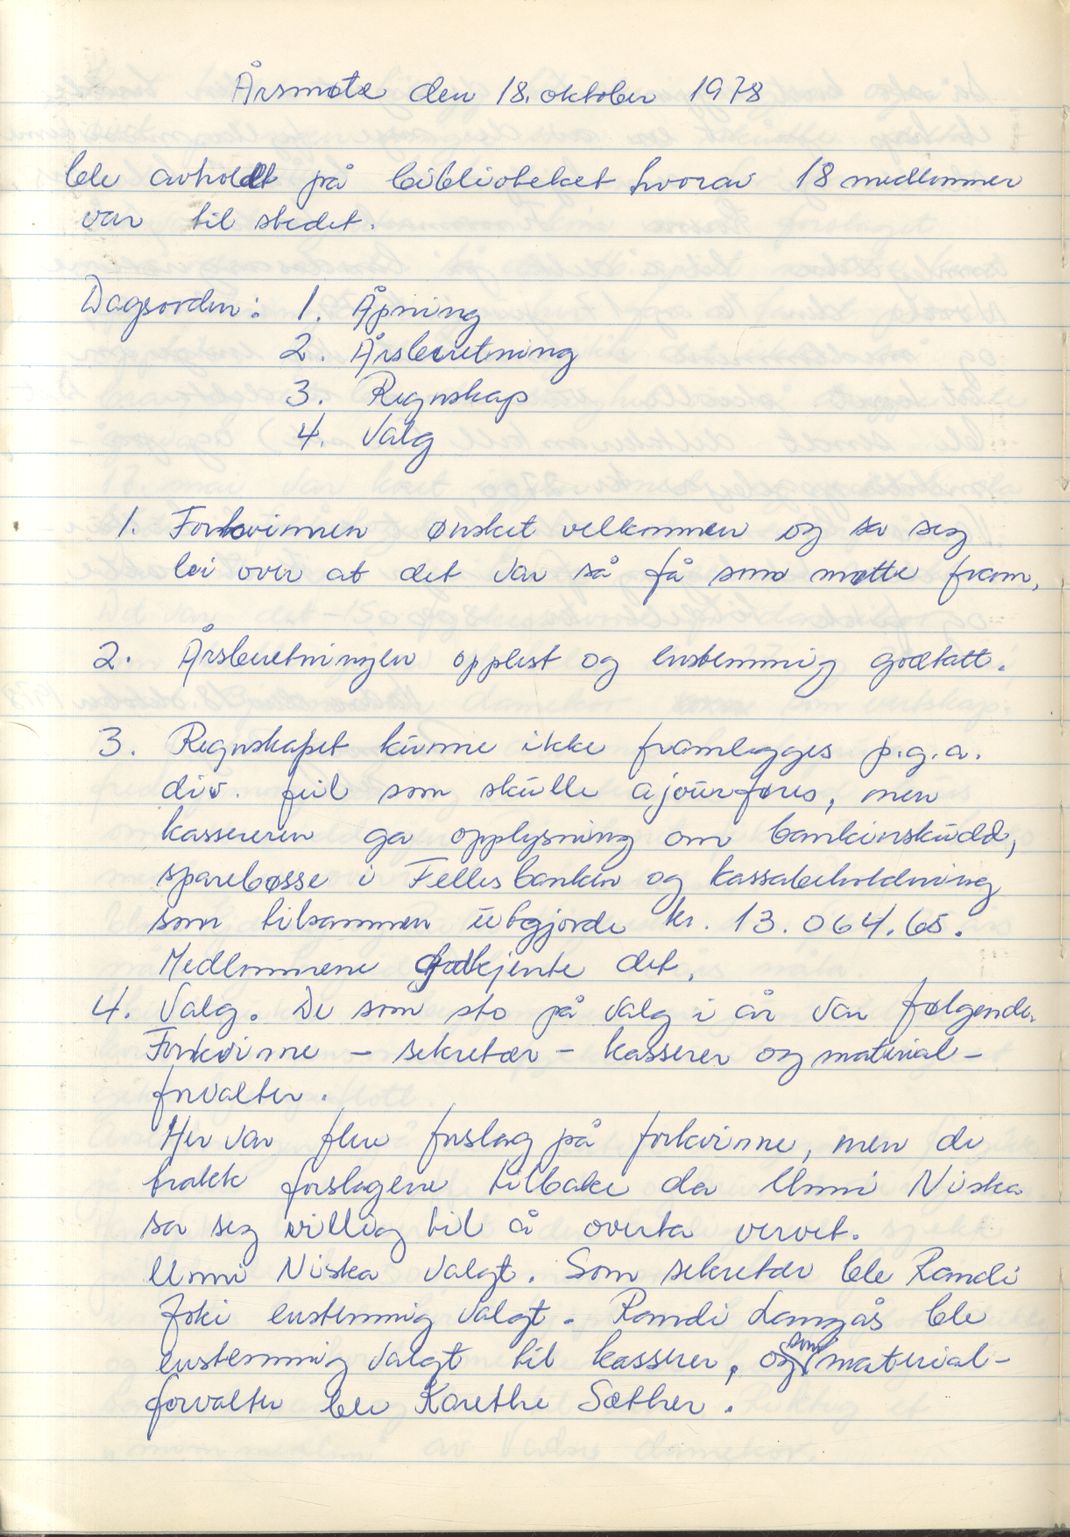 Årsmøte den 18. oktober 1978
ble avholdt på biblioteket hvorav 18 medlemmer
var til stedet.
Dagsorden: 1. Åpning
2. Årsberetning
3. Regnskap
4. Valg
1. Forkvinnen ønsket velkommen og sa seg
lei over at det var så få som møtte fram.
2. Årsberetningen opplest og enstemmig godtatt.
3. Regnskapet kunne ikke framlegges p.g.a.
div. feil som skulle ajourføres, men
kassereren ga opplysning om bankinskudd,
sparebøsse i Fellesbanken og kassabeholdning
som tilsammen utgjorde kr. 13.064.65.
Medlemmene godkjente det.
4. Valg. De som sto på valg i år var følgende.
Forkvinne – sekretær – kasserer og material-
forvalter.
Her var flere forslag på forkvinne, men de
trakk forslagene tilbake da Unni Niska
sa seg villig til å overta vervet.
Unni Niska valgt. Som sekretær ble Randi
Joki enstemmig valgt. Randi Langås ble
enstemmig valgt til kasserer, og som material-
forvalter ble Karethe Sæther.